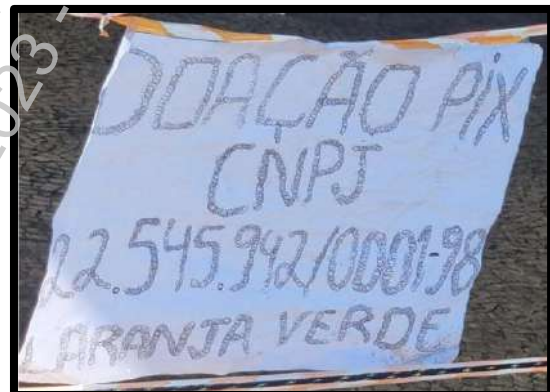 2023 -
DOAÇÃO PIX
CNPJ
22.545.942/0001-98
LARANJA VERDE